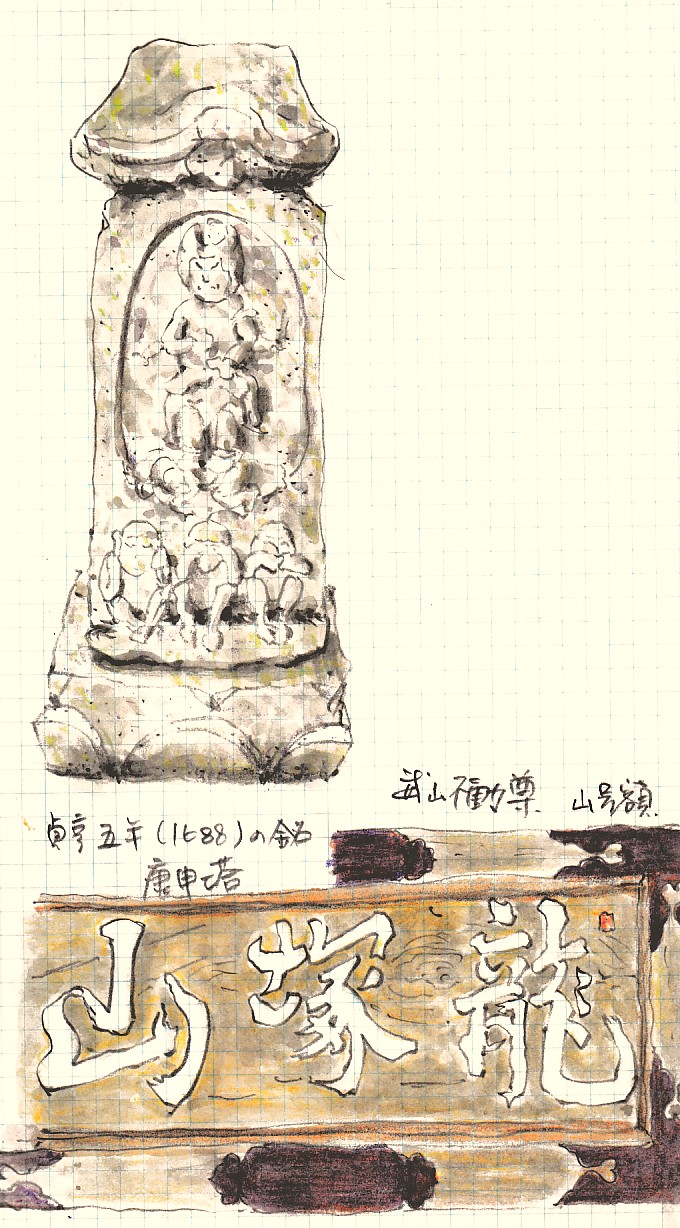 武山不動尊 山号額
貞享五年(1688)の銘
庚申塔
龍塚山